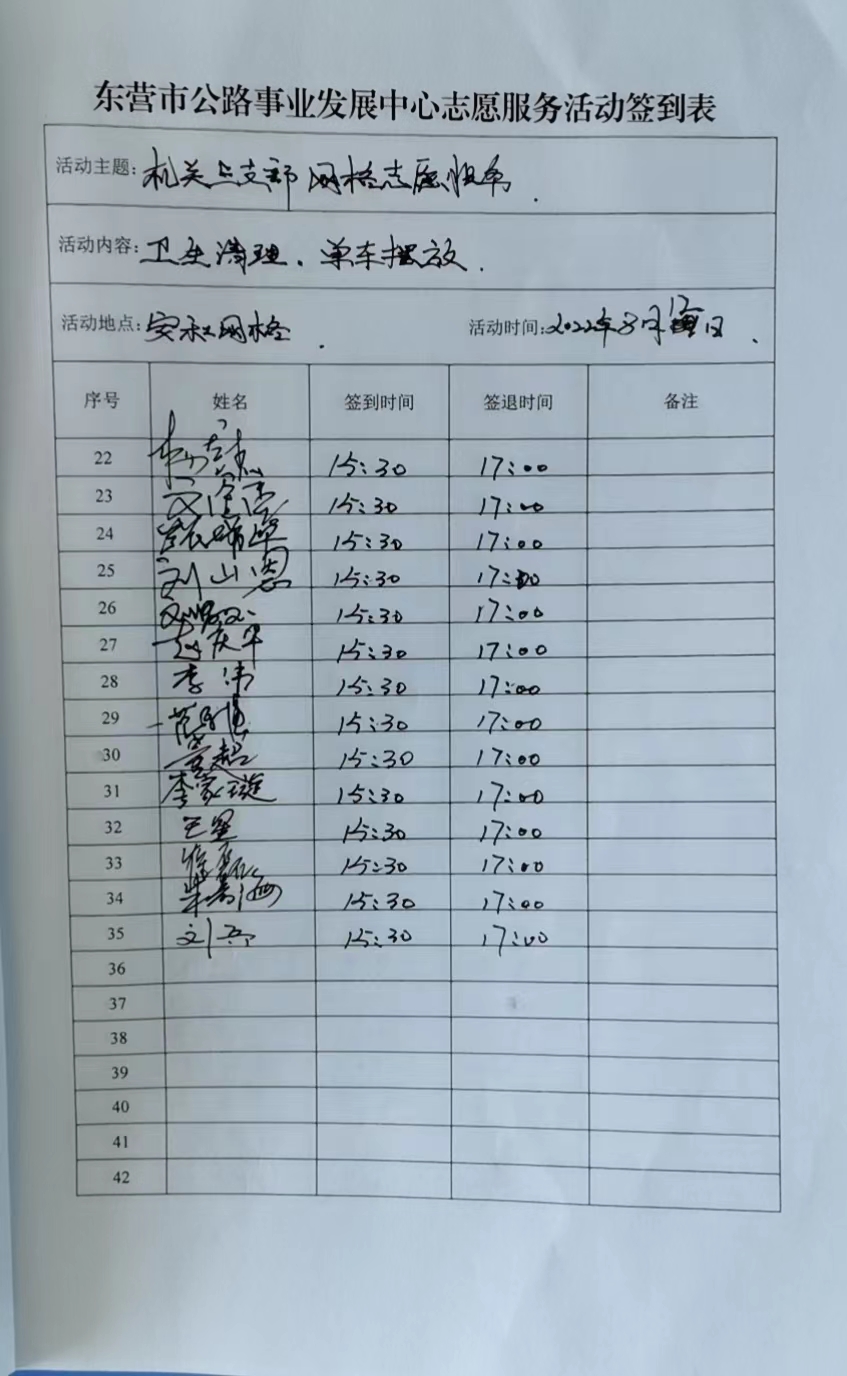 东营市公路事业发展中心志愿服务活动签到表
活动主题: 机关与支部网格志愿服务.
活动内容: 卫生清理、单车摆放.
活动地点: 安和网格. 活动时间: 2022年8月12日.
序号 姓名 签到时间 签退时间 备注
22 15:30 17:00
23 15:30 17:00
24 15:30 17:00
25 刘山恩 15:30 17:00
26 15:30 17:00
27 赵庆华 15:30 17:00
28 李沛 15:30 17:00
29 15:30 17:00
30 15:30 17:00
31 李家璇 15:30 17:00
32 王星 15:30 17:00
33 徐磊 15:30 17:00
34 15:30 17:00
35 15:30 17:00
36
37
38
39
40
41
42